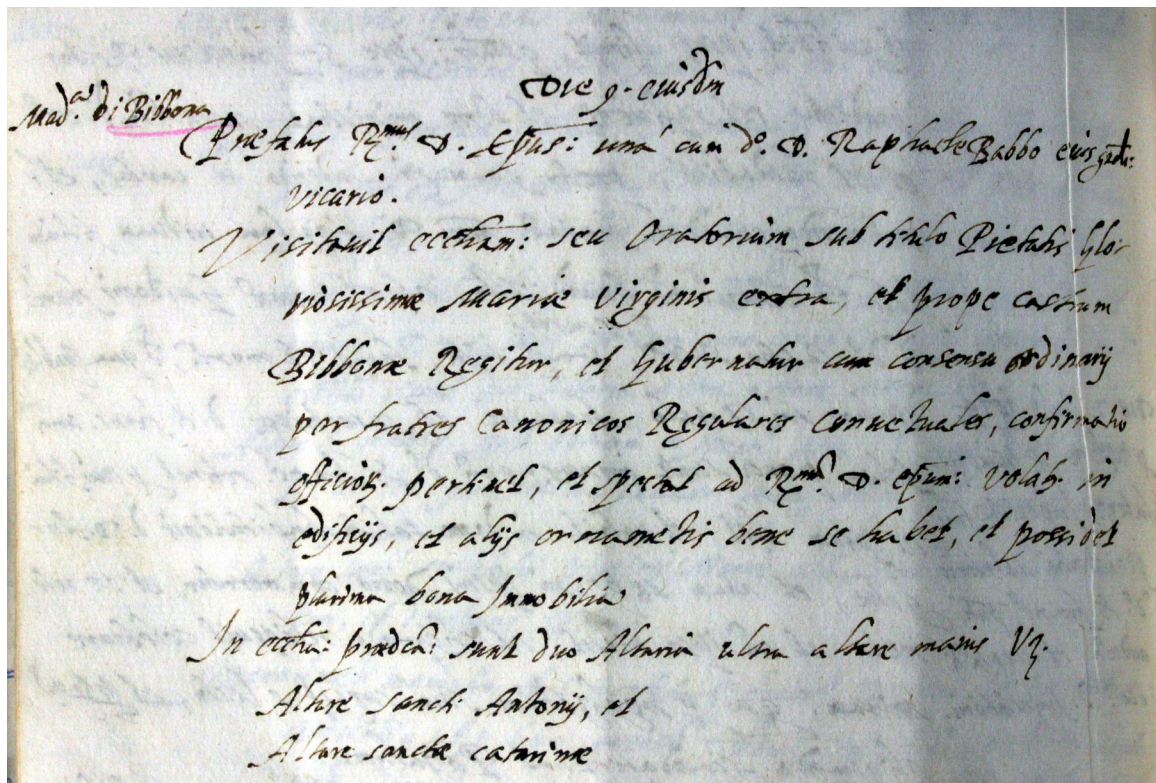 Die 9. eiusdm
Mad.a di Bibbona
Præfatus R.mus D. Epus: una cum d.o D. Raphaele Babbo eius gnli:
vicario.
Visitavit eccliam: seu Oratorium sub titulo Pietatis Glo-
riosissimæ Mariæ Virginis extra, et prope castrum
Bibbonæ Regitur, et Gubernatur cum consensu ordinarij
per fratres Canonicos Regulares Conuetuales, confirmatio
officioꝝ. pertinet, et spectat ad R.mu D. epum: Volat. in
edificijs, et alijs ornametis bene se habet, et possidet
plurima bona Immobilia
In ecclia: prædca: sunt duo Altaria ultra altare maius Vz.
Altare Sancti Antonij, et
Altare sanctæ catarinæ